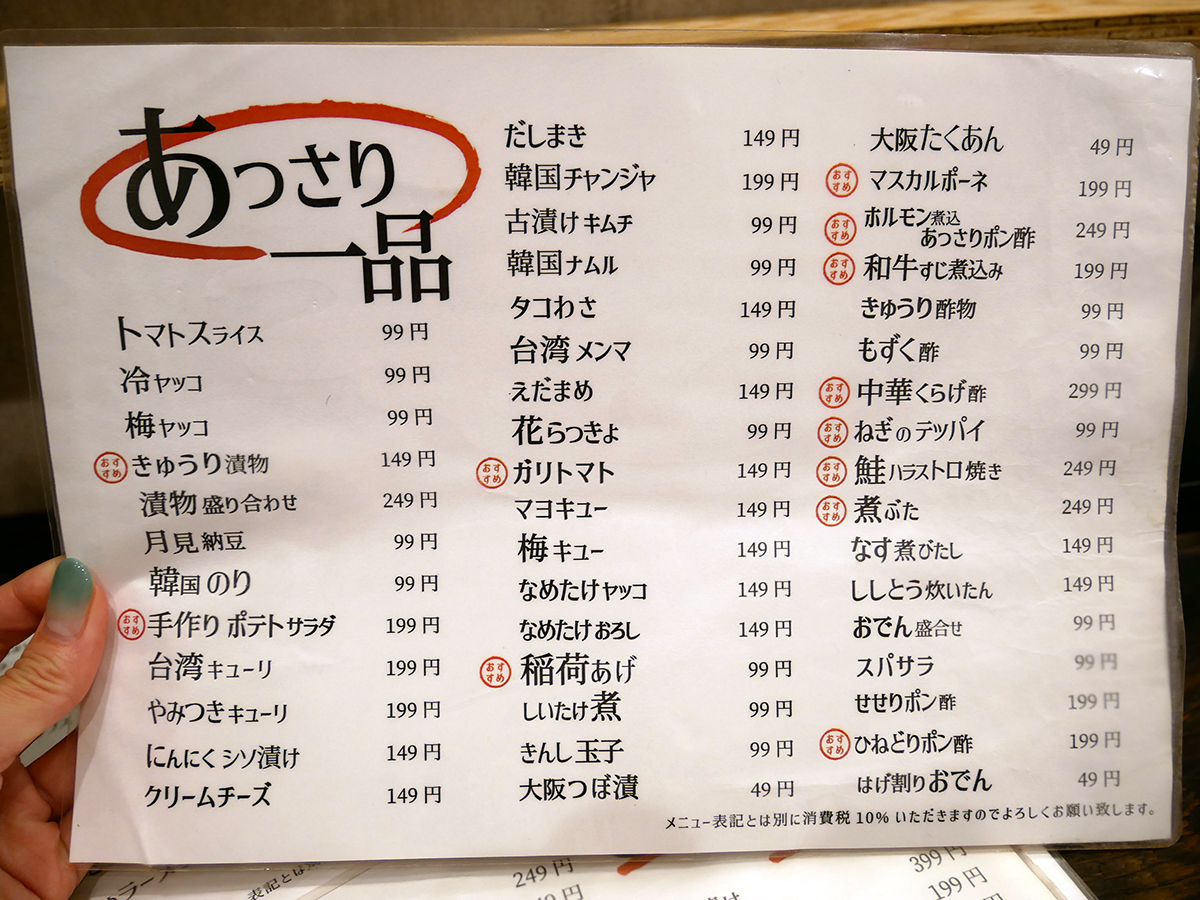 あっさり
一品
トマトスライス 99円
冷ヤッコ 99円
梅ヤッコ 99円
おすすめ きゅうり漬物 149円
漬物盛り合わせ 249円
月見納豆 99円
韓国のり 99円
おすすめ 手作りポテトサラダ 199円
台湾キューリ 199円
やみつきキューリ 199円
にんにくシソ漬け 149円
クリームチーズ 149円
だしまき 149円
韓国チャンジャ 199円
古漬けキムチ 99円
韓国ナムル 99円
タコわさ 149円
台湾メンマ 99円
えだまめ 149円
花らっきょ 99円
おすすめ ガリトマト 149円
マヨキュー 149円
梅キュー 149円
なめたけヤッコ 149円
なめたけおろし 149円
おすすめ 稲荷あげ 99円
しいたけ煮 99円
きんし玉子 99円
大阪つぼ漬 49円
大阪たくあん 49円
おすすめ マスカルポーネ 199円
おすすめ ホルモン煮込
あっさりポン酢 249円
おすすめ 和牛すじ煮込み 199円
きゅうり酢物 99円
もずく酢 99円
おすすめ 中華くらげ酢 299円
おすすめ ねぎのテッパイ 99円
おすすめ 鮭ハラストロ焼き 249円
おすすめ 煮ぶた 249円
なす煮びたし 149円
ししとう炊いたん 149円
おでん盛合せ 99円
スパサラ 99円
せせりポン酢 199円
おすすめ ひねどりポン酢 199円
はげ割りおでん 49円
メニュー表記とは別に消費税10%いただきますのでよろしくお願い致します。
表記とは
249円
399円
199円